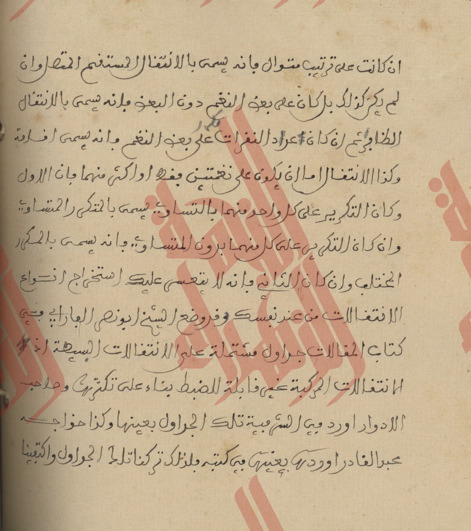 ان كانت على ترتيب متوال فانه يسمى بالانتقال المستقيم المتصل وان
لم يكن كذلك بل كان على بعض النغم دون البعض فانه يسمى بالانتقال
الطافر ثم ان كان اعداد النقرات على بعض النغم فانه يسمى اقامة
وكذا الانتقال اما ان يكون على نغمتين فقط او اكثر منهما فان الاول
وكان التكرير على كل واحد منهما بالتساوي يسمى بالمتكرر المتساوي
وان كان التكرير على كل منهما بدون المتساوي فانه يسمى بالمتكرر
المختلف وان كان الثاني فانه لا يتعسر عليك استخراج انواع
الانتقالات من عند نفسك وقد وضع الشيخ ابو نصر الفارابي في
كتاب المقالات جداول مشتملة على الانتقالات البسيطة اذ
الانتقالات المركبة غير قابلة للضبط بناء على تكثرها وصاحب
الادوار اورد في الشرفية تلك الجداول بعينها وكذا خواجه
عبد القادر اوردها بعينها في كتبه فلذلك تركنا تلك الجداول واكتفينا